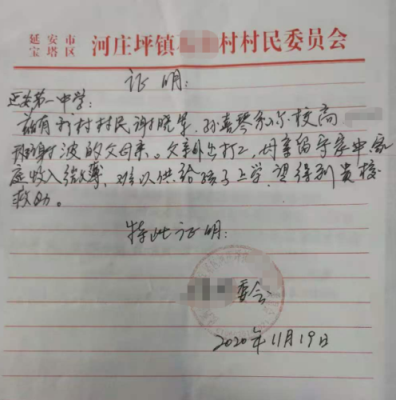 延安市
宝塔区 河庄坪镇 村村民委员会
证明:
延安第一中学:
兹有 村村民谢晓军、孙喜琴系尔校高
波的父母亲。父亲外出打工,母亲留守家中,家
庭收入微薄,难以供给孩子上学,望得到贵校
救助。
特此证明:
委会
2020年11月19日